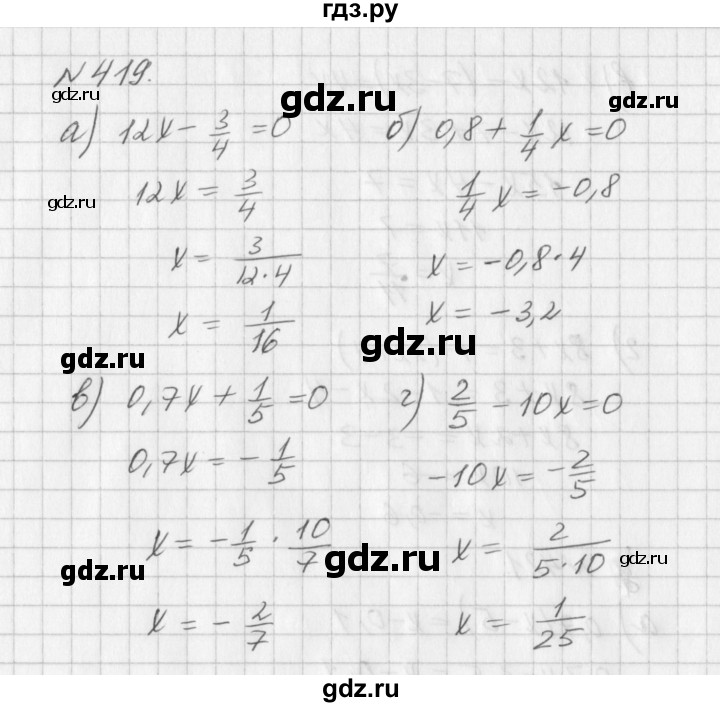 гдз.ру
№ 419.
gdz.ru
gdz.ru
gdz.ru
а) 12x - 3/4 = 0
б) 0,8 + 1/4 x = 0
12x = 3/4
1/4 x = -0,8
gdz.ru
gdz.ru
x = 3/(12·4)
x = -0,8·4
x = 1/16
x = -3,2
gdz.ru
gdz.ru
в) 0,7x + 1/5 = 0
г) 2/5 - 10x = 0
0,7x = -1/5
-10x = -2/5
gdz.ru
gdz.ru
x = -1/5 · 10/7
x = 2/(5·10)
gdz.ru
gdz.ru
gdz.ru
x = -2/7
x = 1/25
gdz.ru